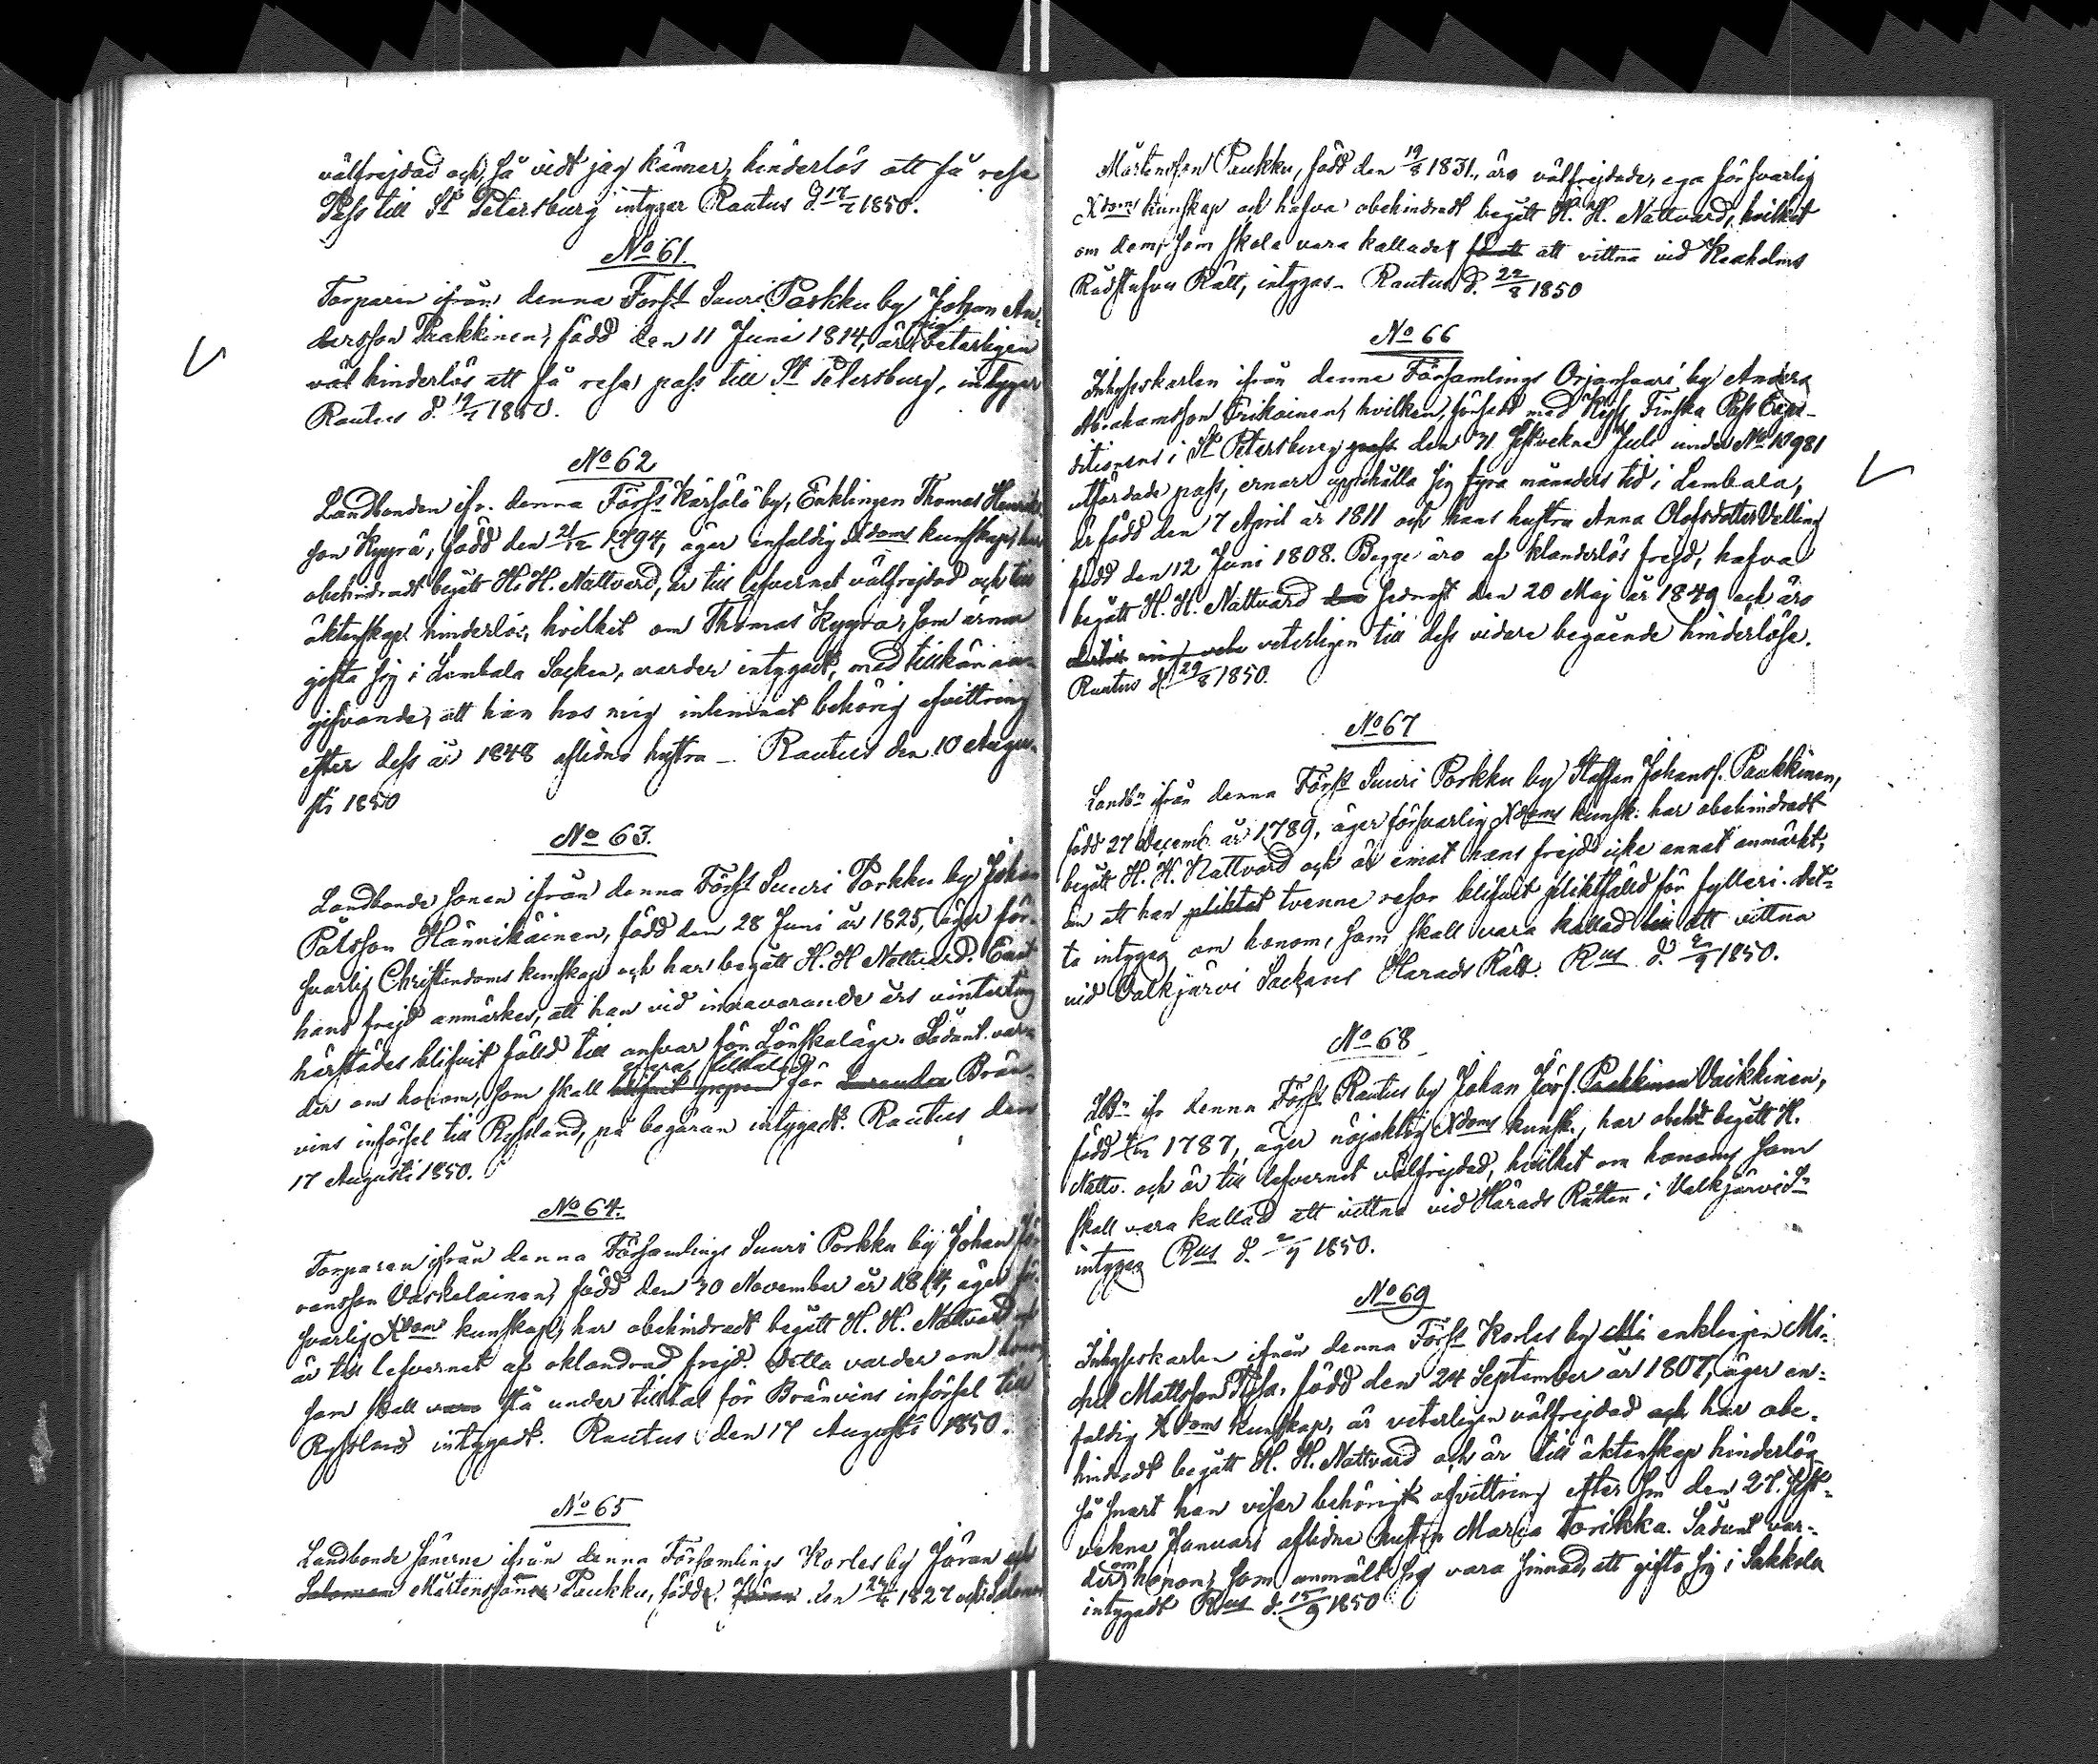 välfrejdad och, så vidt jag känner, hinderlös att få resa
Pass till St Petersburg intygar Rautus d. 17/7 1850.
No 61.
Torparen ifrån denna Förs:s Suuri Porkku by Johan An-
dersson Paakkinen, född den 11 Juni 1814, är mig veterligen
väl hinderlös att få resa pass till St Petersburg, intygar
Rautus d. 19/7 1850.
No 62
Landbonden ifr. denna Förs:s Kärsälä by, Enklingen Thomas Henriks-
son Kyyrä, född den 21/12 1794, äger enfaldig Xdoms kunskap, har
obehindradt begått H. H. Nattvard, är till lefvernet välfrejdad och till
äktenskap hinderlös, hvilket om Thomas Kyyrä, som ärnar
gifta sig i Lembala Socken, varder intygadt, med tillkänna-
gifvande, att han hos mig inlemnat behörig afvittring
efter dess år 1848 aflidna hustru – Rautus den 10 Augu-
sti 1850
No 63.
Landbonde sonen ifrån denna Förs:s Suuri Porkku by Johan
Pålsson Hännikäinen, född den 28 Juni år 1825, äger för-
svarlig Christendoms kunskap och har begått H. H Nattvard. Emot
hans frejd anmärkes, att han vid innevarande års vinterting
härstädes blifvit fälld till ansvar för Lönskaläge. Sådant var-
der om honom, som skall vara tilltalad för Brän-
vins införsel till Ryssland, på begäran intygadt. Rautus den
17 Augusti 1850.
No 64.
Torparen ifrån denna Församlings Suuri Porkku by Johan Jö-
ransson Vaskelainen, född den 30 November år 1814, äger för-
svarlig Xdoms kunskap, har obehindradt begått H. H. Nattvard och
är till lefvernet af oklandrad frejd. Detta varder om honom,
som skall vara stå under tilltal för Bränvins införsel till
Ryssland intygadt. Rautus den 17 Augusti 1850.
No 65
Landbonde sönerne ifrån denna Församlings Korles by Jöran och
Salomon Mårtenssöner Paukku, födde Jöran den 24/4 1827 och Salomon
Mårtensson Paukku, född den 19/8 1831, äro välfrejdade, ega försvarlig
Xdoms kunskap och hafva obehindradt begått H. H. Nattvard, hvilket
om dem, som skola vara kallade att vittna vid Kexholms
Rådstufvu Rätt, intygas – Rautus d. 22/8 1850
No 66
Inhyseskarlen ifrån denna Församlings Orjansaari by Anders
Abrahamsson Eerikainen, hvilken, försedd med Kejs. Finska Pass Expe-
ditionens i St Petersburg den 31 sistvekne Juli under No 10981
utfärdade pass, ernar uppehålla sig fyra månaders tid i Lembala,
är född den 7 April år 1811 och hans hustru Anna Olofsdotter Velling
född den 12 Juni 1808. Begge äro af klanderlös frejd, hafva
begått H. H. Nattvard sednast den 20 Maj år 1849 och äro
veterligen till dess vidare begående hinderlöse.
Rautus d. 29/8 1850.
No 67
Landbn ifrån denna Förs:s Suuri Porkku by Staffan Johanss. Paakkinen,
född 27 Decemb. år 1789, äger försvarlig Xdoms kunsk: har obehindradt
begått H. H. Nattvard och är emot hans frejd icke annat anmärkt,
än att han pliktat tvenne resor blifvit pliktfälld för fylleri. Det-
ta intygas om honom, som skall vara kallad att vittna
vid Valkjärvi Sockens Härads Rätt. Rus d. 2/9 1850.
No 68
LBn ifr denna Förs:s Rautus by Johan Jörs. Paakkinen Vaikkinen,
född 1787, äger nöjaktig Xdoms kunsk., har obehdt begått H.
Nattv. och är till lefvernet välfrejdad, hvilket om honom, som
skall vara kallad att vittna vid Härads Rätten i Valkjärvi Sn
intygas Rus d. 2/9 1850.
No 69
Inhyseskarlen ifrån denna Förs:s Korles by Mi enklingen Mi-
chel Mattsson, född den 24 September år 1807, äger en-
faldig Xdoms kunskap, är veterligen välfrejdad och har obe-
hindradt begått H. H. Nattvard och är till äktenskap hinderlös
så snart han visar behörigt afvittring efter sin den 27. sist-
vekne Januari aflidna hustru Maria Torikka. Sådant var-
der om honom, som anmält sig vara sinnad, att gifta sig i Sakkola
intygadt Rus d. 15/9 1850